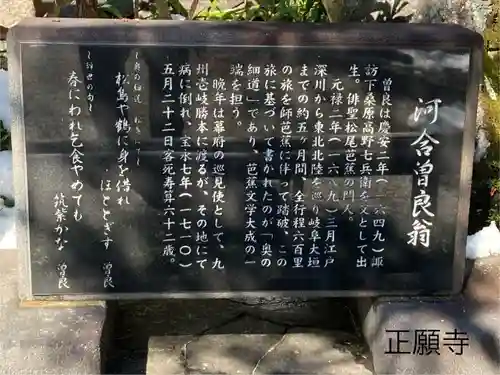 河合曽良翁
曽良は慶安二年(一六四九)諏
訪下桑原高野七兵衛を父として出
生。俳聖松尾芭蕉の門人。
元禄二年(一六八九)三月江戸
深川から東北北陸を巡り岐阜大垣
までの約五ヶ月間、全行程六百里
の旅を師芭蕉に伴って踏破、この
旅に基づいて書かれたのが「奥の
細道」であり、芭蕉文学大成の一
端を担う。
晩年は幕府の巡見使として、九
州壱岐勝本に渡るが、その地にて
病に倒れ、宝永七年(一七一〇)
五月二十二日客死寿算六十二歳。
松島や鶴に身を借れ
ほととぎす 曽良
〜辞世の句〜
春にわれ乞食やめても
筑紫かな 曽良
正願寺